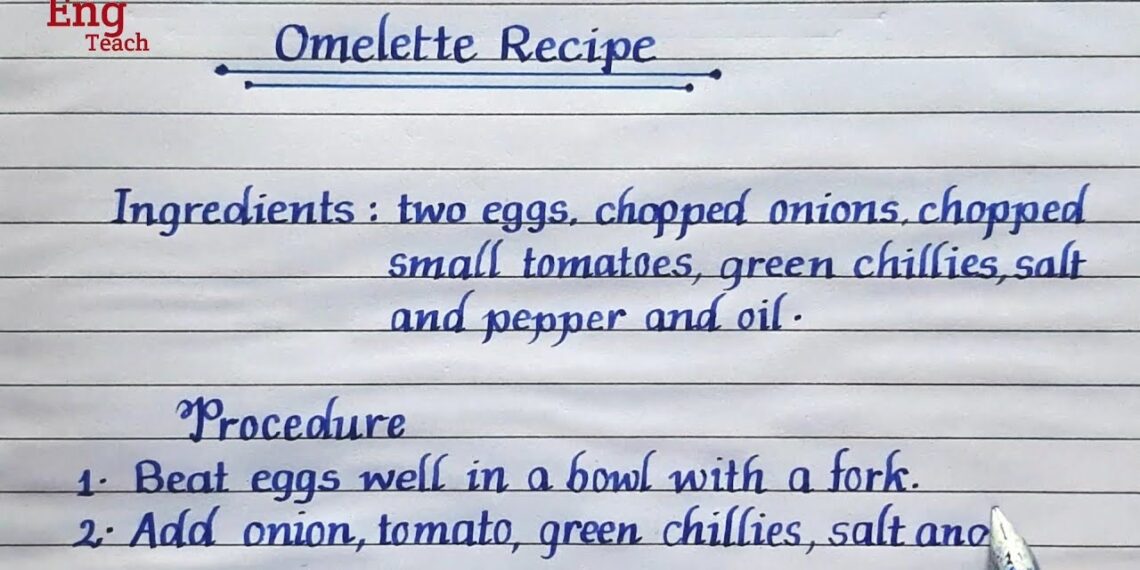 Eng
Teach
Omelette Recipe
Ingredients : two eggs, chopped onions, chopped
small tomatoes, green chillies, salt
and pepper and oil.
Procedure
1. Beat eggs well in a bowl with a fork.
2. Add onion, tomato, green chillies, salt